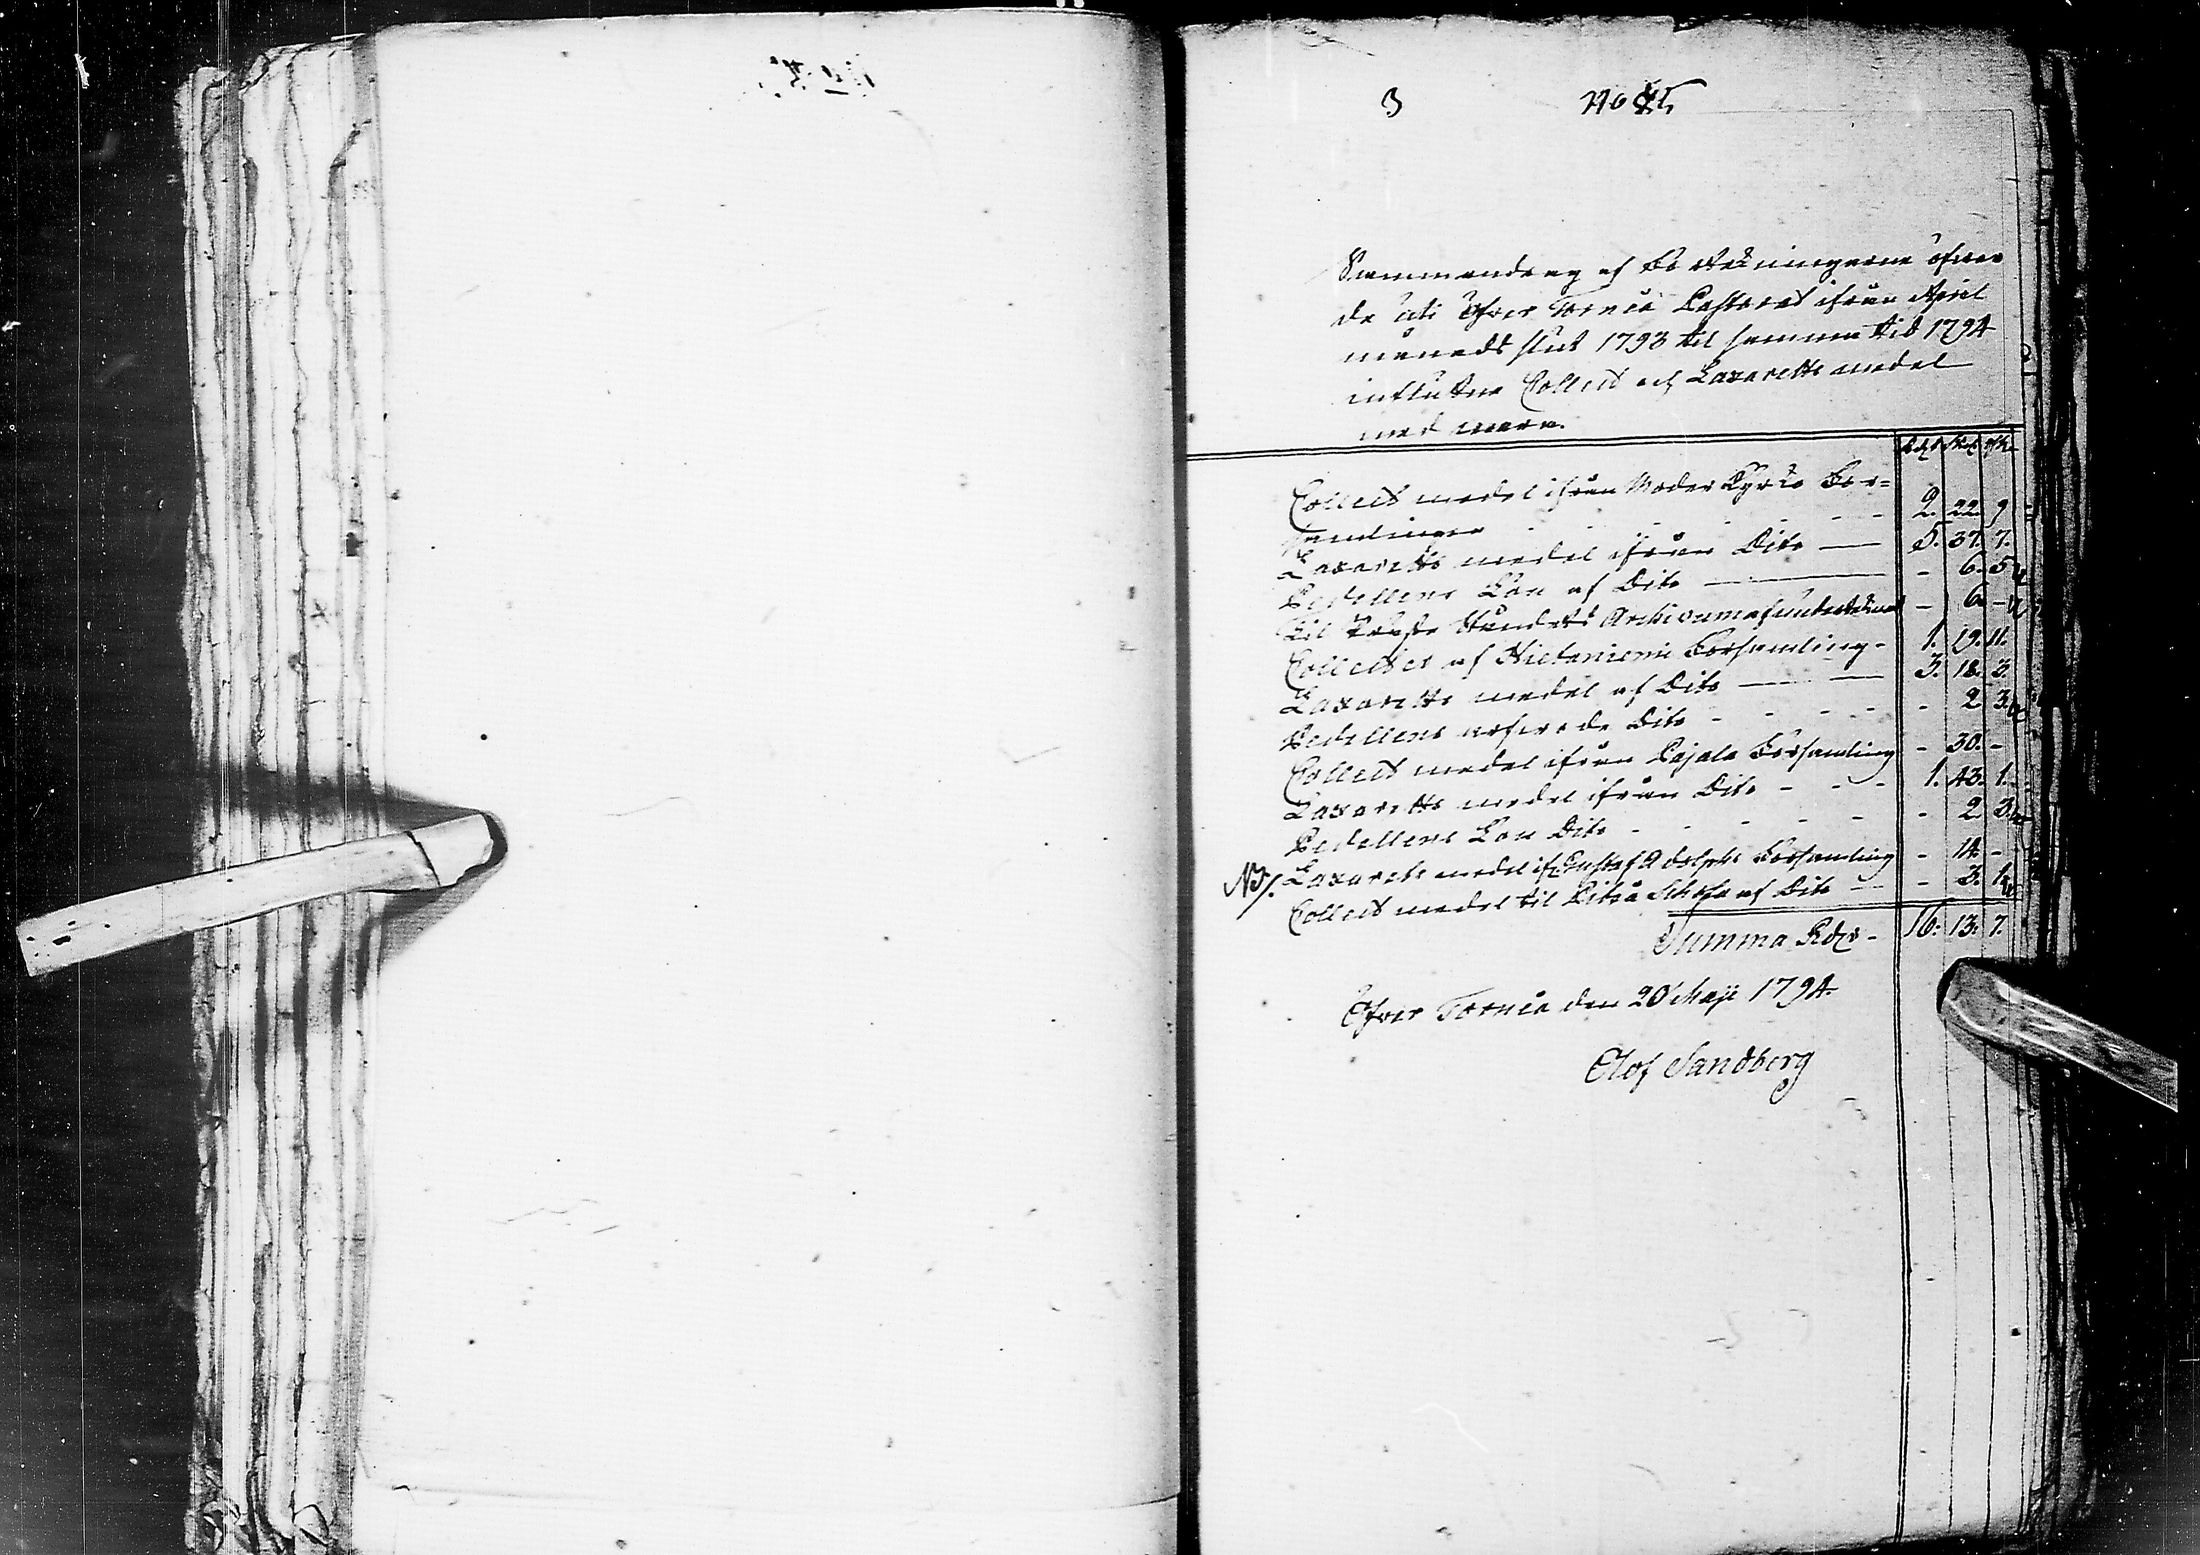 3 No 5
Sammandrag af Förtekningarne öfver
de uti Öfver Torneå Pastorat ifrån April
månads slut 1793 til samma tid 1794
influtne Collect och Lazaretts medel
med mera.
Rdr Sk rst
Collect medel ifrån Moder Kyrko För=
samlingen - - - - - 2. 22. 9
Lazaretts medel ifrån Dito — 5. 37. 7.
Pedellens Lön af Dito — - 6. 5
Til Archivum - 6. -
Collecter af Hietaniemi Församling - 1. 19. 11.
Lazaretts medel af Dito — 3. 18. 3.
Pedellens Dito - - - - - 2 3
Collect medel ifrån Pajala Församling - 30. -
Lazaretts medel ifrån Dito - - - 1. 43. 1.
Pedellens Lön Dito - - - - - 2. 3.
NB. Lazaretts medel ifr. Gustaf Adolphs Församling - 14 -
Collect medel til Piteå Schola af Dito — - 3. 1
Summa Rdr - 16. 13. 7.
Öfver Torneå den 20 Maji 1794.
Olof Sandberg